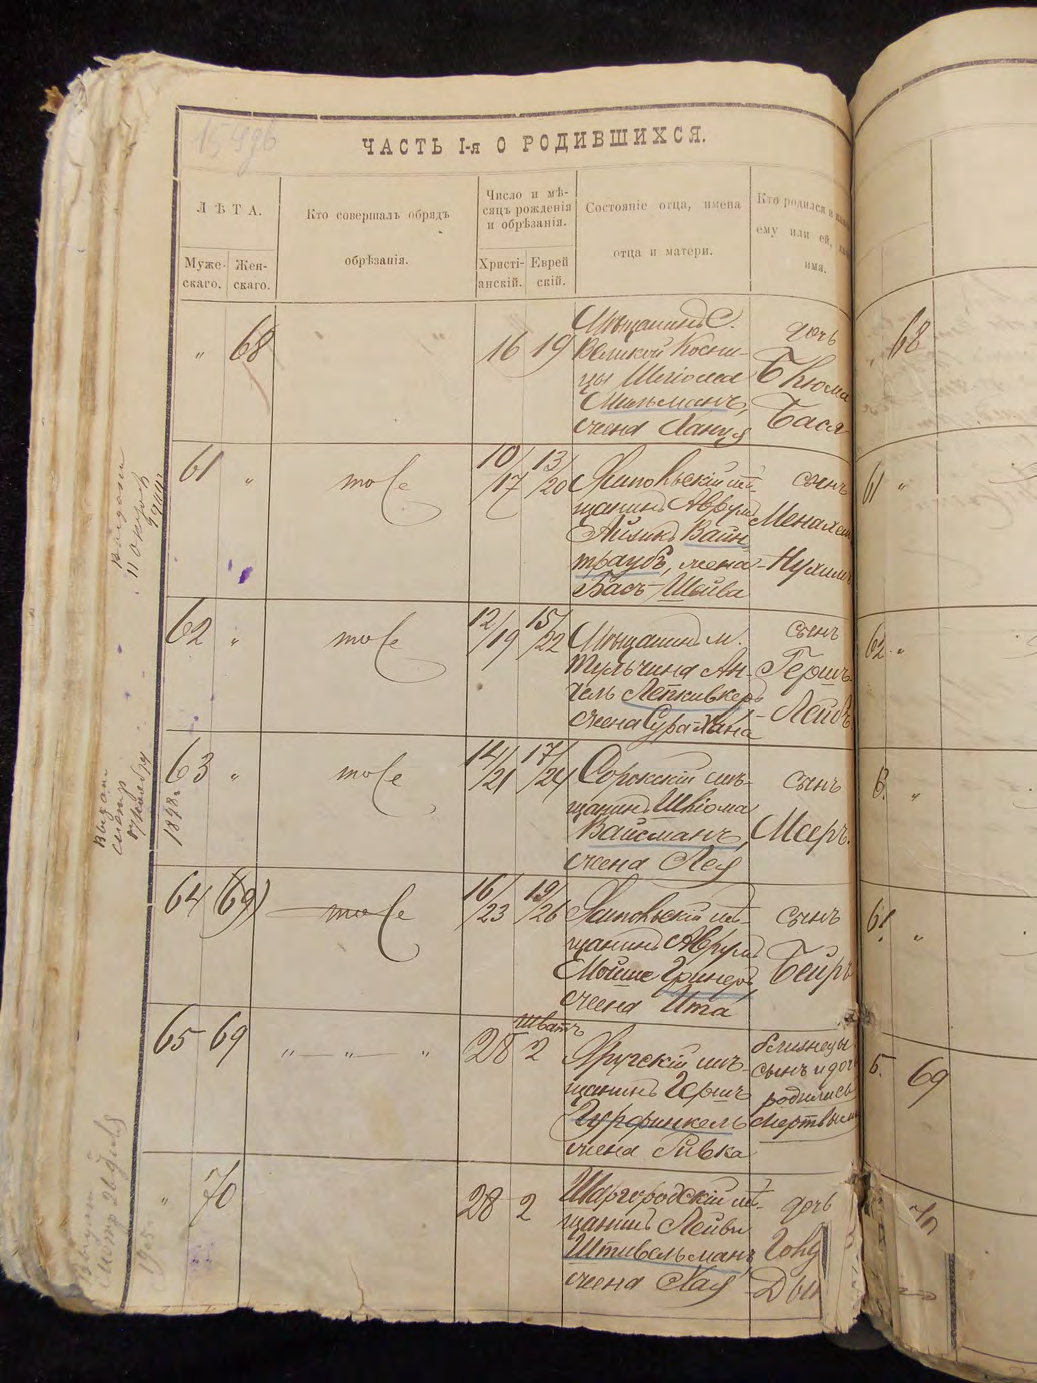 ЧАСТЬ I-я О РОДИВШИХСЯ.
ЛѢТА.
Муже-
скаго.
Жен-
скаго.
Кто совершалъ обрядъ
обрѣзанія.
Число и мѣ-
сяцъ рожденія
и обрѣзанія.
Христі-
анскій.
Еврей
скій.
Состояніе отца, имена
отца и матери.
Кто родился и
ему или ей,
имя.
" 68 " 16 19
Мѣщанинъ с.
Великой Косни-
цы Шліома
Мильманъ,
жена Ханця
дочь
Бася
61 " тоже 10/17 13/20
Ямпольскій мѣ-
щанинъ Аврумъ
Айзикъ Вайн
траубъ, жена
Бась-Шейва
сынъ
Нухимъ
62 " тоже 12/19 15/22
Мѣщанинъ м.
Тульчина Ан-
чель Лепкивкеръ
жена Сура-Хана
сынъ
Гершъ
Лейбъ
63 " тоже 14/21 17/24
Сорокскій мѣ-
щанинъ Шліома
Вайсманъ,
жена Лея
сынъ
Мееръ.
64 (69) тоже 16/23 19/26
Ямпольскій мѣ-
щанинъ Аврумъ
Мойше Гринеръ,
жена Ита
сынъ
Бейръ
65 69 " — " — " 28 2
Шватъ
Яругскій мѣ-
щанинъ Гершъ
Гурфинкель
жена Ривка
близнецы
сынъ и дочь
родились
мертвыми
" 70 28 2
Шаргородскій мѣ-
щанинъ Лейви
Штивельманъ,
жена Хая
дочь
68
61 "
62 "
"
"
69